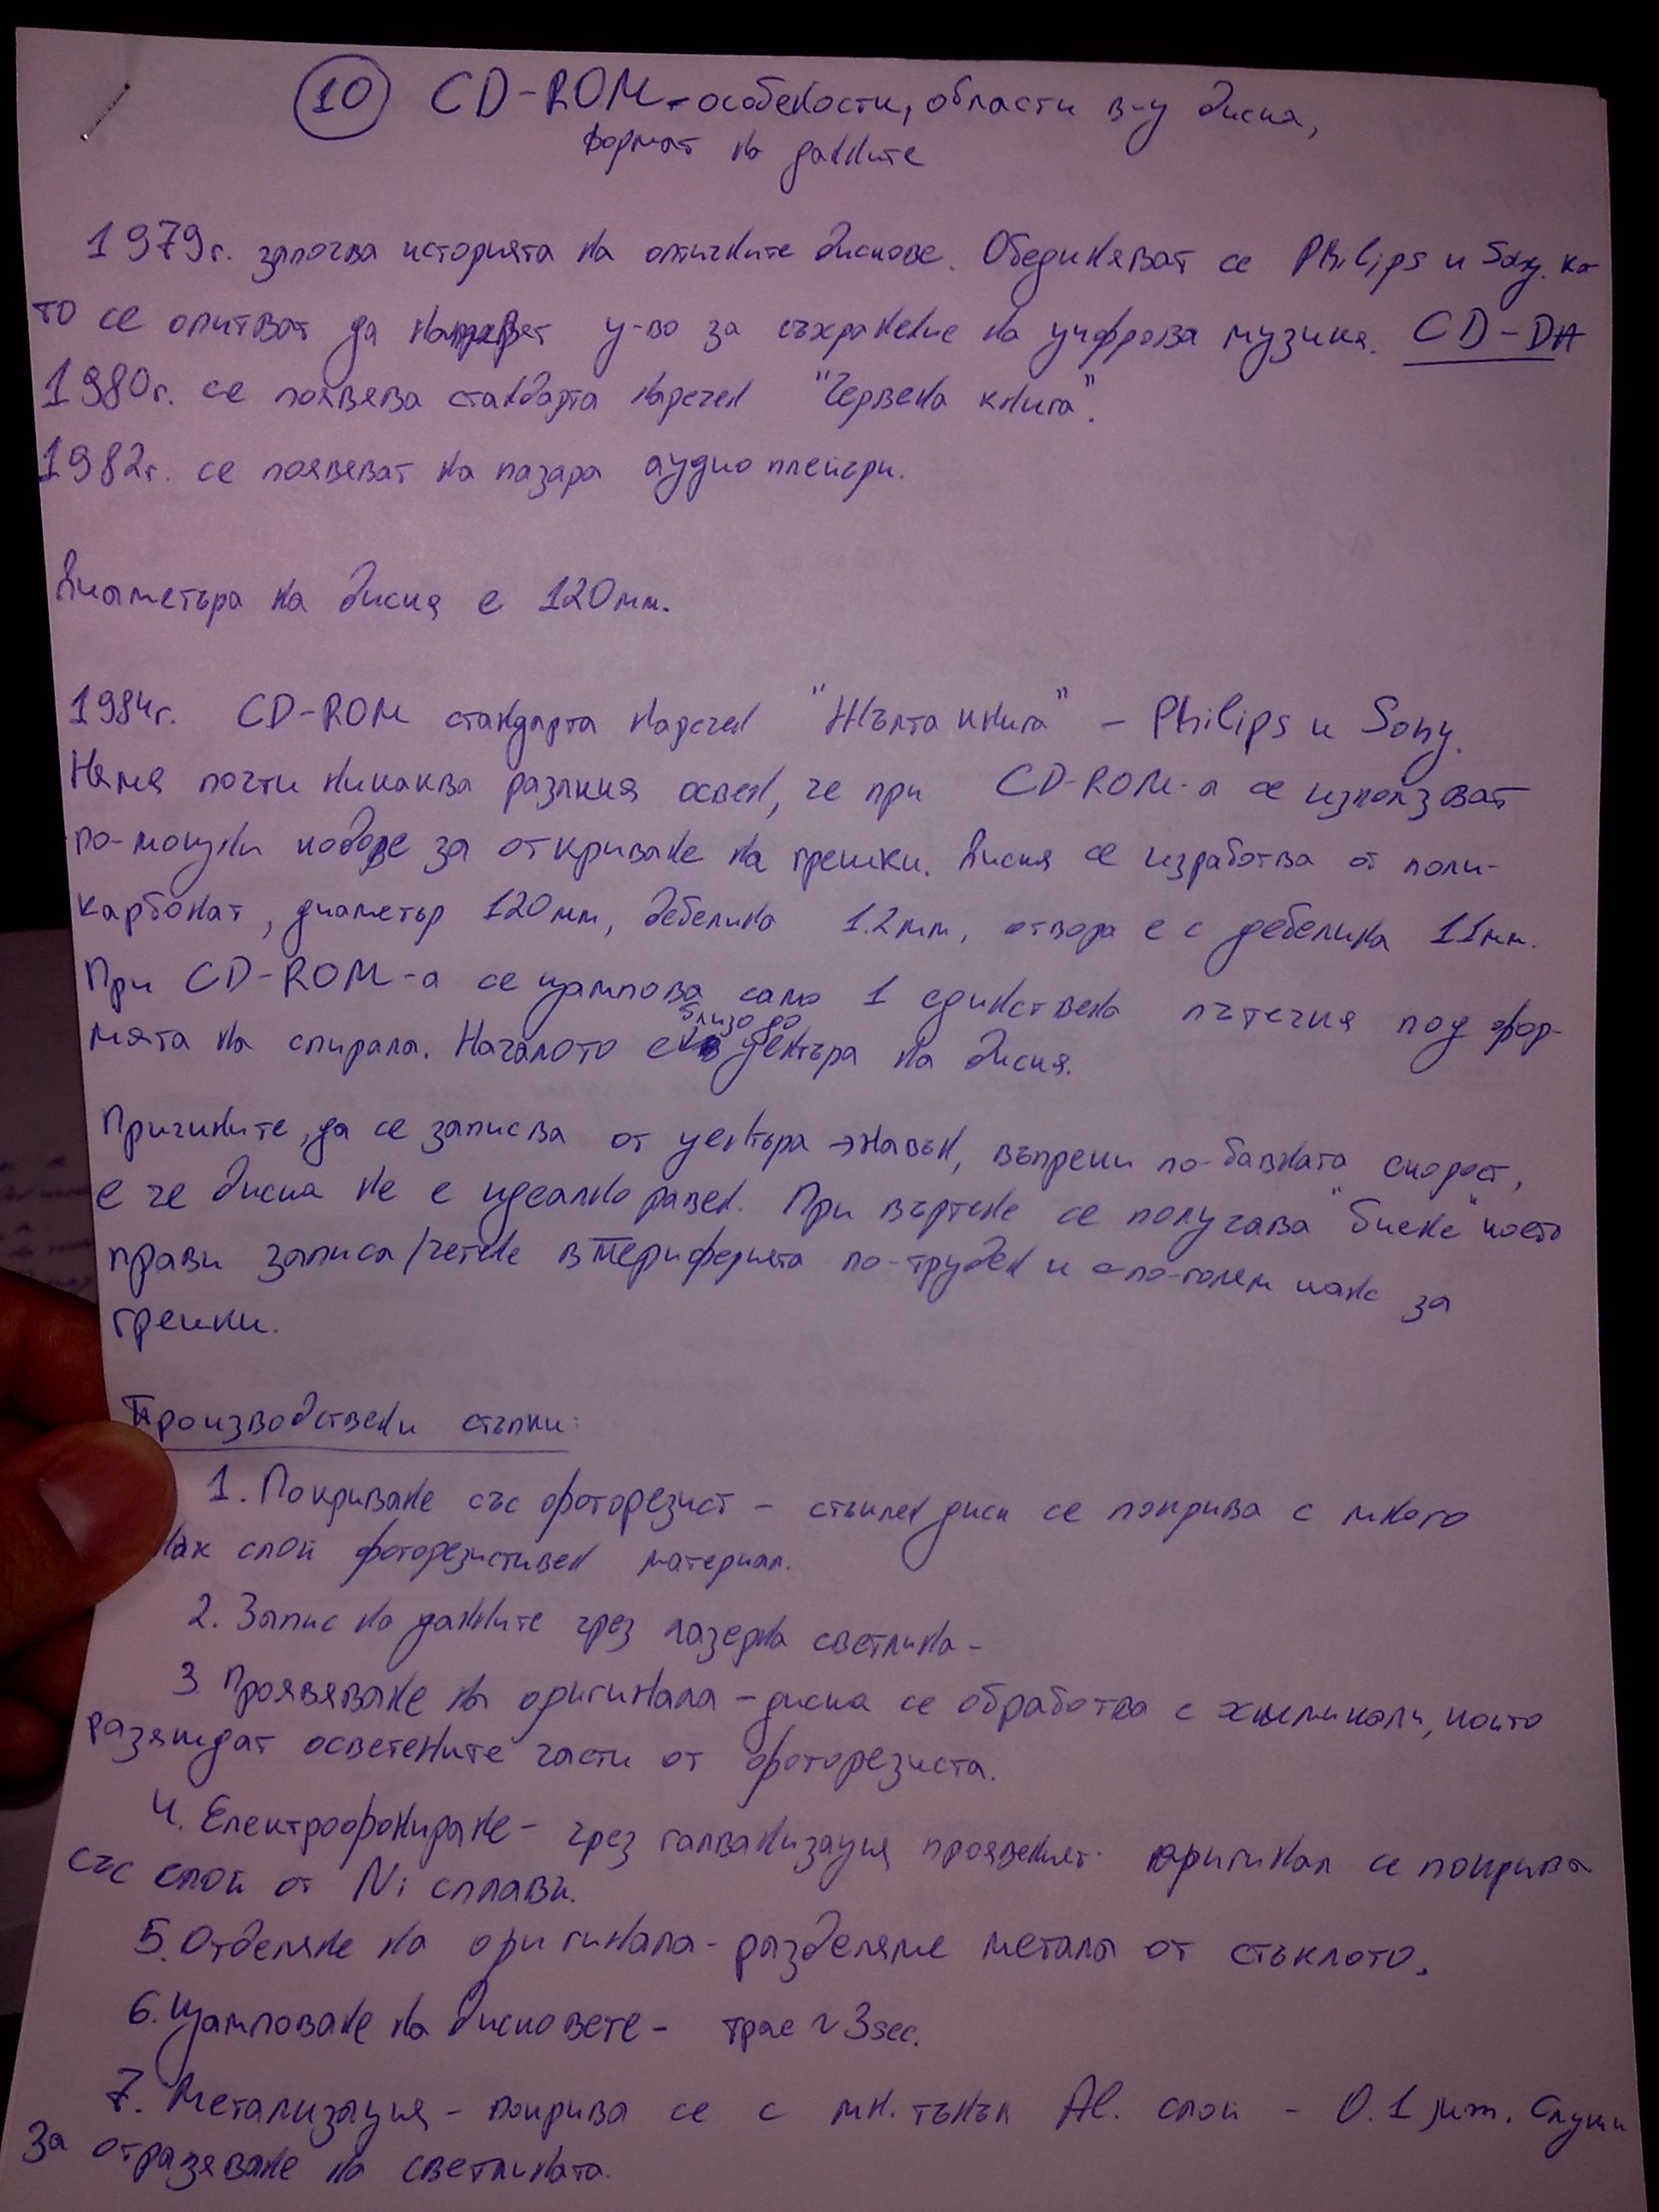 10 CD-ROM - особености, области в-у диска,
формат на данните
1979г. започва историята на оптичните дискове. Обединяват се Philips и Sony. ка-
то се опитват да направят у-во за съхранение на цифрова музика. CD-DA
1980г. се появява стандарта наречен "Червена книга".
1982г. се появяват на пазара аудио плейъри.
Диаметъра на диска е 120мм.
1984г. CD-ROM стандарта наречен "Жълта книга" - Philips и Sony.
Няма почти никаква разлика освен, че при CD-ROM-а се използват
по-мощни кодове за откриване на грешки. Диска се изработва от поли-
карбонат, диаметър 120мм, дебелина 1.2мм, отвора е с дебелина 11мм.
При CD-ROM-а се щампова само 1 единствена пътечка под фор-
мята на спирала. Началото е близо до центъра на диска.
Причините, да се записва от центъра → навън, въпреки по-бавната скорост,
е че диска не е идеално равен. При въртене се получава "биене" което
прави записа/четене в периферията по-труден и с по-голям шанс за
грешки.
Производствени стъпки:
1. Покриване със фоторезист - стъклен диск се покрива с много
слой фоторезистивен материал.
2. Запис на данните чрез лазерна светлина -
3. Проявяване на оригинала - диска се обработва с химикали, които
разяждат осветените части от фоторезиста.
4. Електроофониране - чрез галванизация проявеният оригинал се покрива
със слой от Ni сплави.
5. Отделяне на оригинала - разделяме метала от стъклото.
6. Щамповане на дисковете - трае ~ 3sec.
7. Метализация - покрива се с мн. тънък Al. слой - 0.1 μm. Служи
за отразяване на светлината.